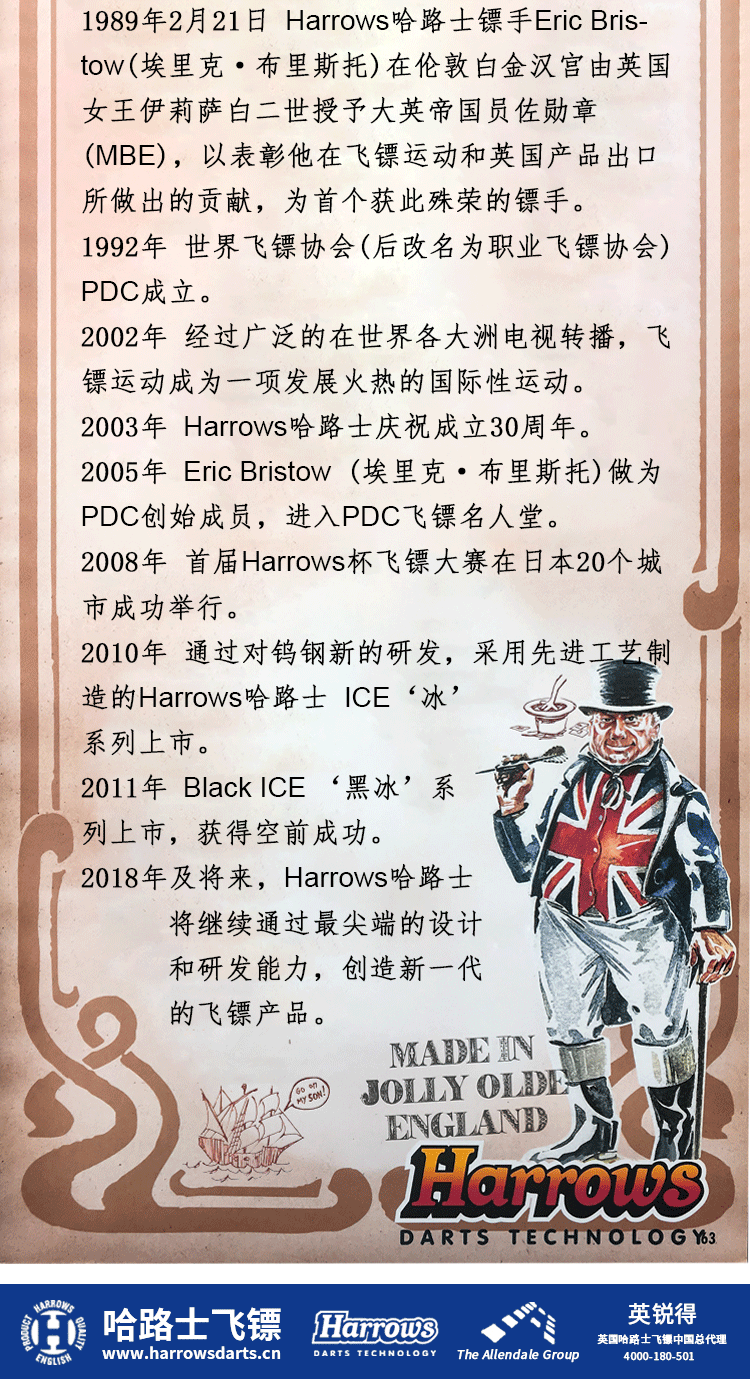 1989年2月21日 Harrows哈路士镖手Eric Bris-
tow(埃里克·布里斯托)在伦敦白金汉宫由英国
女王伊莉萨白二世授予大英帝国员佐勋章
(MBE)，以表彰他在飞镖运动和英国产品出口
所做出的贡献，为首个获此殊荣的镖手。
1992年 世界飞镖协会(后改名为职业飞镖协会)
PDC成立。
2002年 经过广泛的在世界各大洲电视转播，飞
镖运动成为一项发展火热的国际性运动。
2003年 Harrows哈路士庆祝成立30周年。
2005年 Eric Bristow (埃里克·布里斯托)做为
PDC创始成员，进入PDC飞镖名人堂。
2008年 首届Harrows杯飞镖大赛在日本20个城
市成功举行。
2010年 通过对钨钢新的研发，采用先进工艺制
造的Harrows哈路士 ICE‘冰’
系列上市。
2011年 Black ICE ‘黑冰’系
列上市，获得空前成功。
2018年及将来，Harrows哈路士
将继续通过最尖端的设计
和研发能力，创造新一代
的飞镖产品。
MADE IN
JOLLY OLDE
ENGLAND
GO ON
MY SON!
Harrows
DARTS TECHNOLOGY
HARROWS
PRODUCT
QUALITY
ENGLISH
H
哈路士飞镖
www.harrowsdarts.cn
Harrows
DARTS TECHNOLOGY
The Allendale Group
英锐得
英国哈路士飞镖中国总代理
4000-180-501